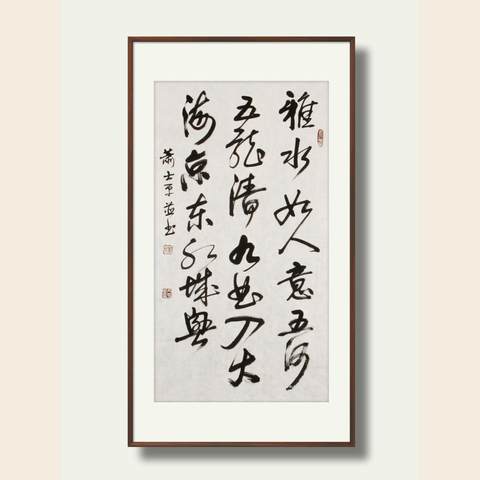 雅水如人意五河
五龙清九曲入大
海京东红城兴
萧士平益书